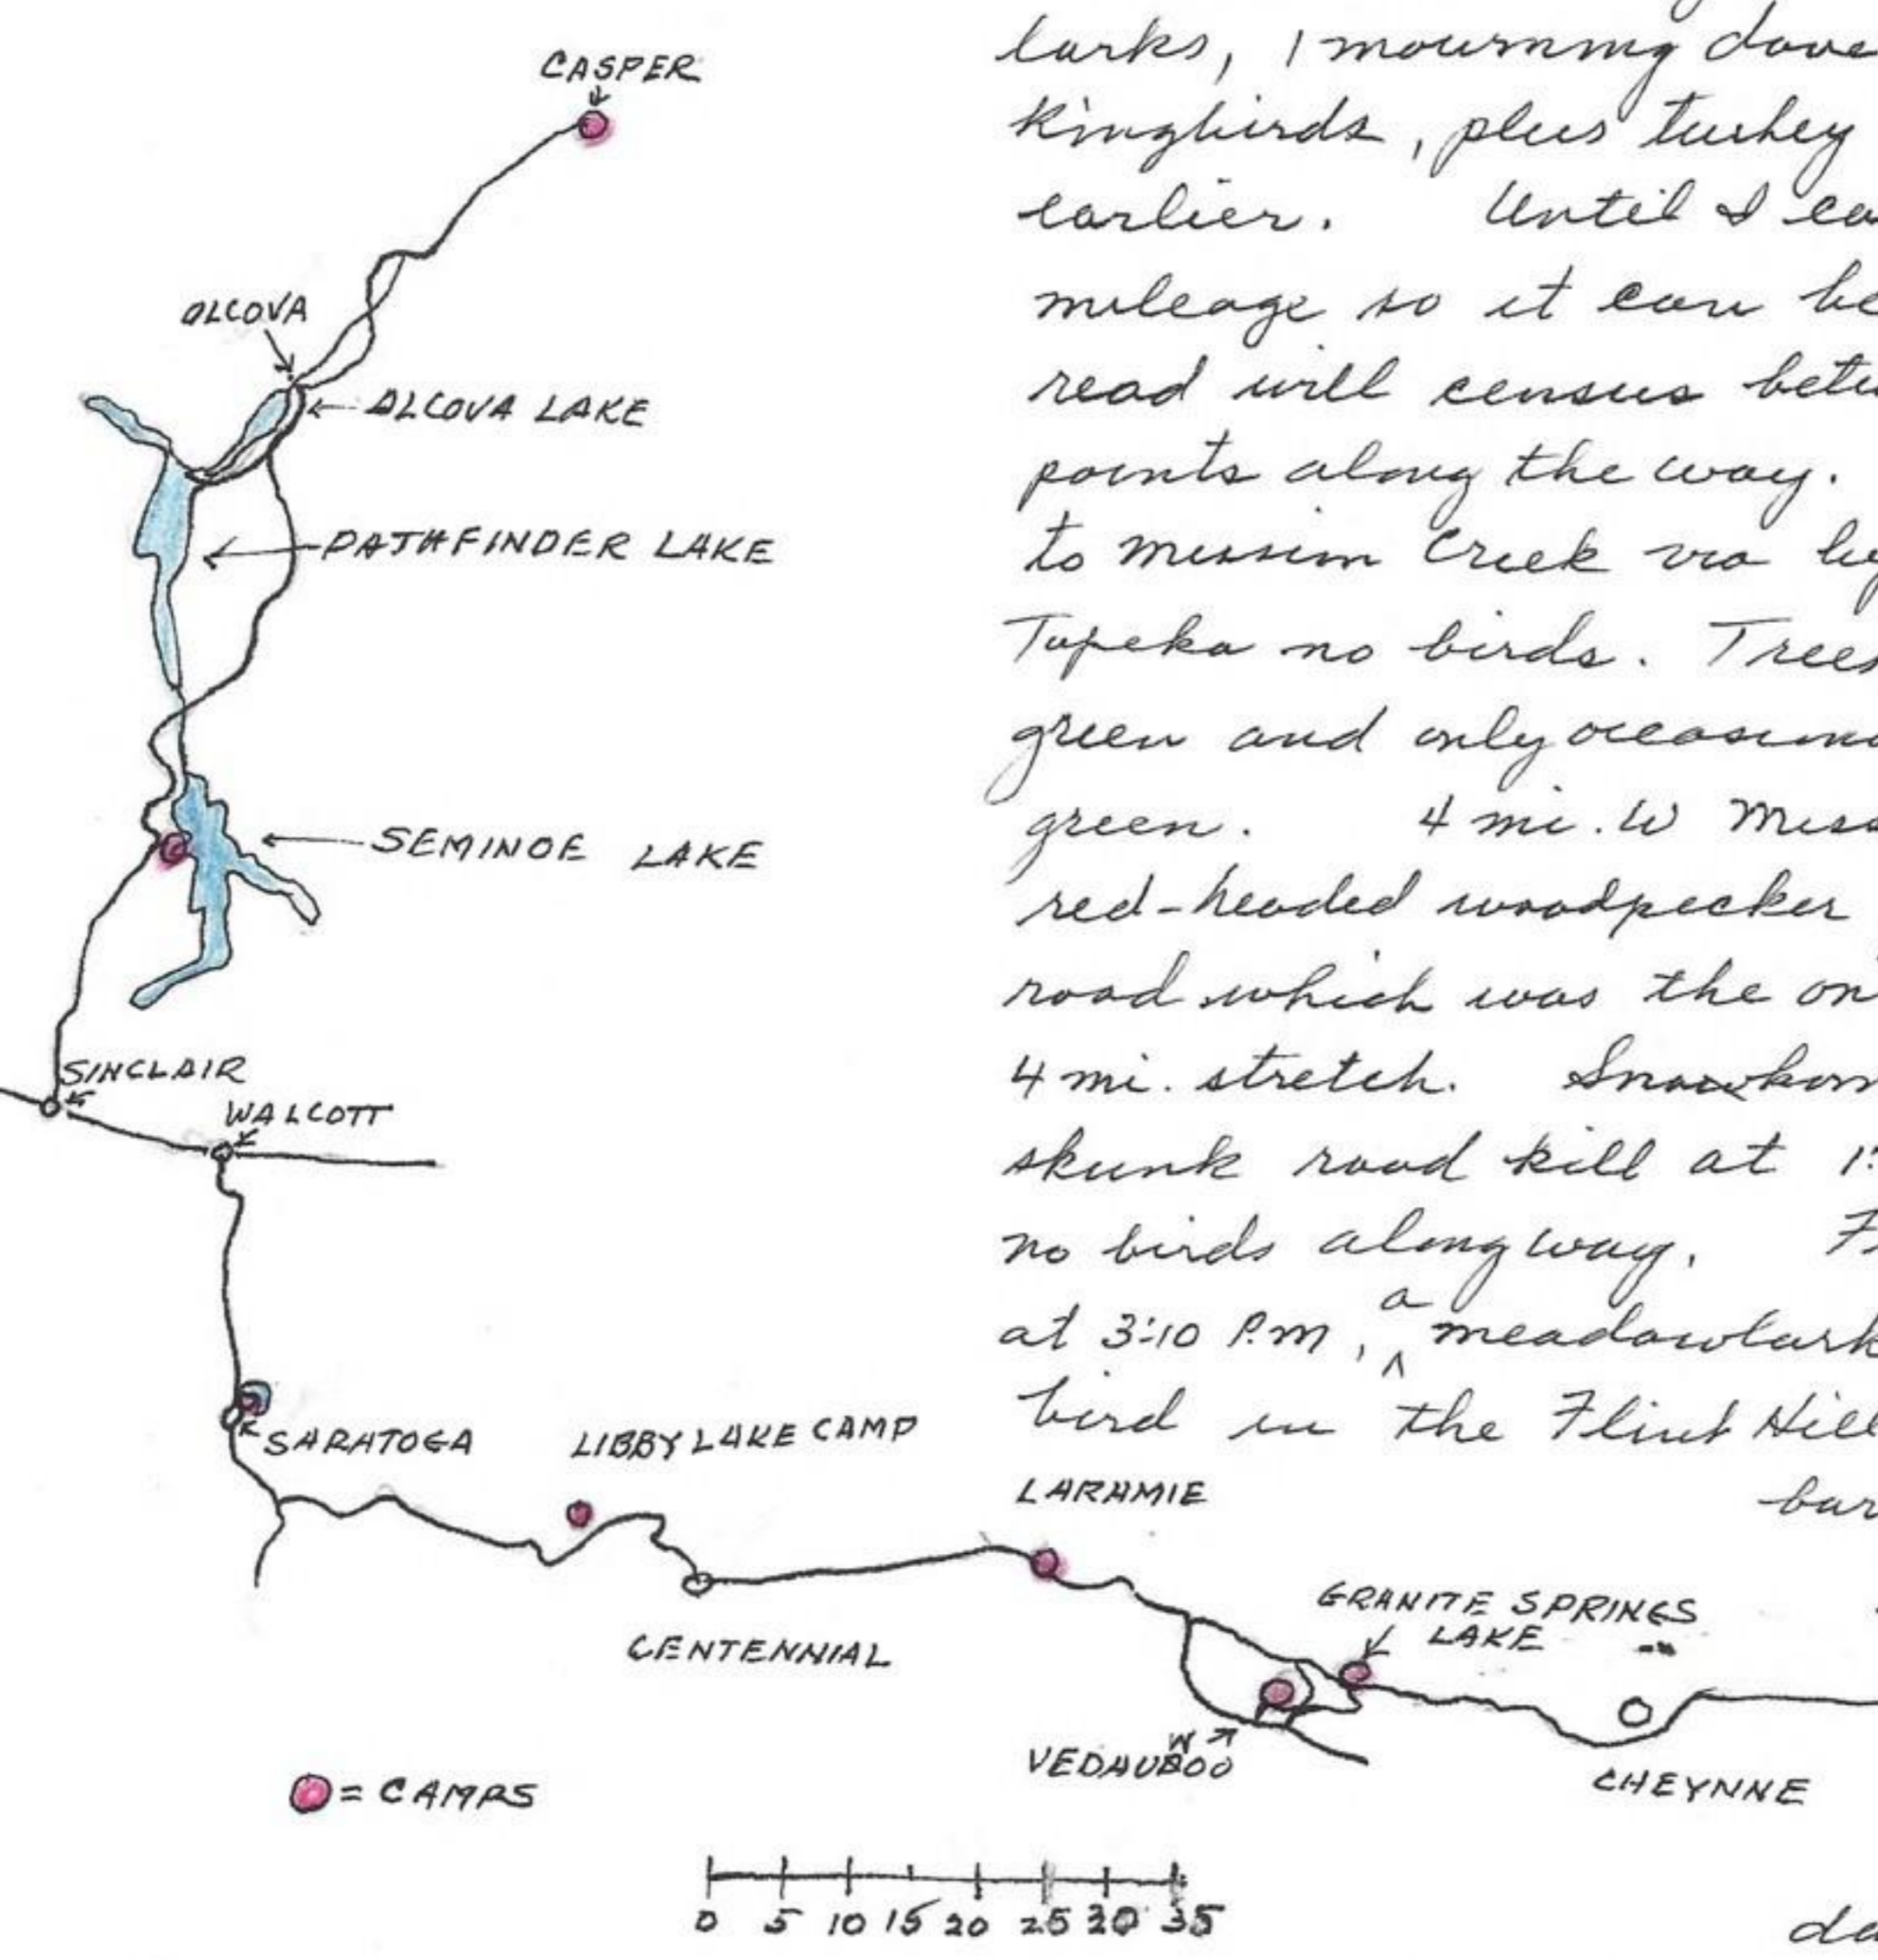 CASPER
ALCOVA
ALCOVA LAKE
PATHFINDER LAKE
SEMINOE LAKE
SINCLAIR
WALCOTT
SARATOGA
LIBBY LAKE CAMP
CENTENNIAL
LARAMIE
GRANITE SPRINGS
LAKE
W
VEDAUBOO
CHEYNNE
= CAMPS
0 5 10 15 20 25 30 35
larks, 1 mourning dove
Kingbirds, plus turkey
earlier. Until I ca
mileage so it can be
read will census betw
points along the way.
to Mission Creek via
Topeka no birds. Trees
green and only
green. 4 mi. W Miss
red-headed woodpecker
road which was the on
4 mi. stretch.
skunk road kill at 1:
no birds along way. F
at 3:10 P.M, a meadowlark
bird in the Flint Hill
bar
da